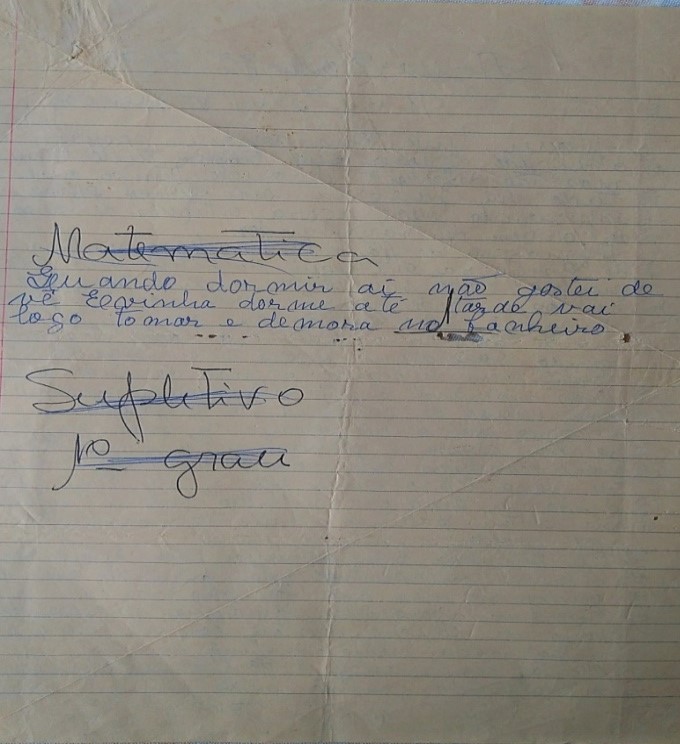 Matematica
Quando dormir aí não gostei de
vê Eevinha dorme até tarde vai
logo tomar e demora no banheiro
Supletivo
1º grau